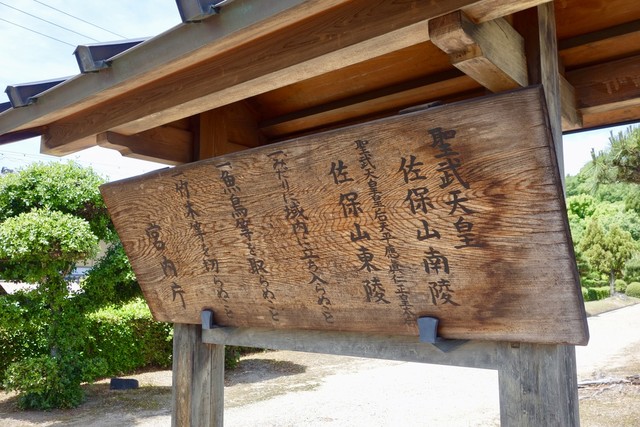 聖武天皇
佐保山南陵
聖武天皇皇后天平應真仁正皇太后
佐保山東陵
一、みだりに域内に立ち入らぬこと
一、魚鳥等を取らぬこと
一、竹木等を切らぬこと
宮内庁